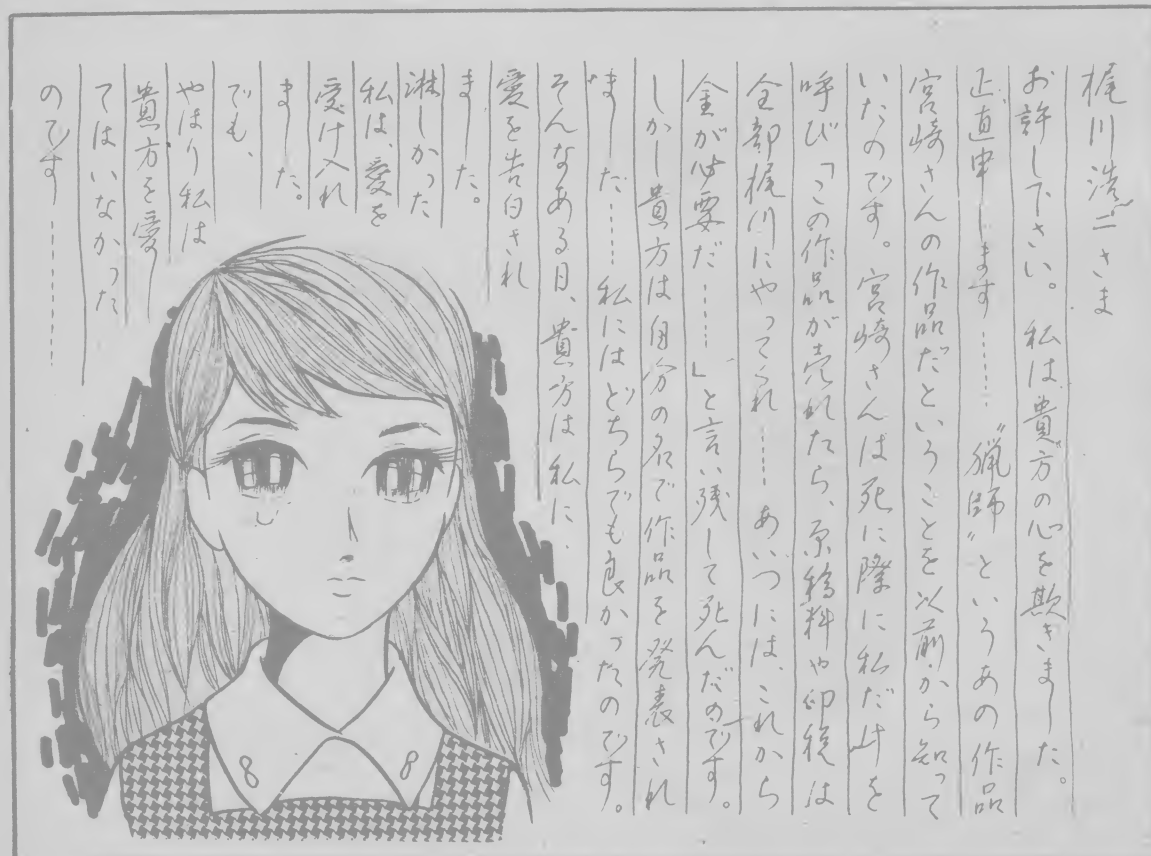 梶川浩二さま
お許し下さい。私は貴方の心を欺きました。
正直申します……〝猟師〟というあの作品
宮崎さんの作品だということを以前から知って
いたのです。宮崎さんは死に際に私だけを
呼び「この作品が売れたら、原稿料や印税は
全部梶川にやってくれ……あいつには、これから
金が必要だ……」と言い残して死んだのです。
しかし貴方は自分の名で作品を発表され
ました……私にはどちらでも良かったのです。
そんなある日、貴方は私に
愛を告白され
ました。
淋しかった
私は、愛を
受け入れ
ました。
でも、
やはり私は
貴方を愛し
てはいなかった
のです……